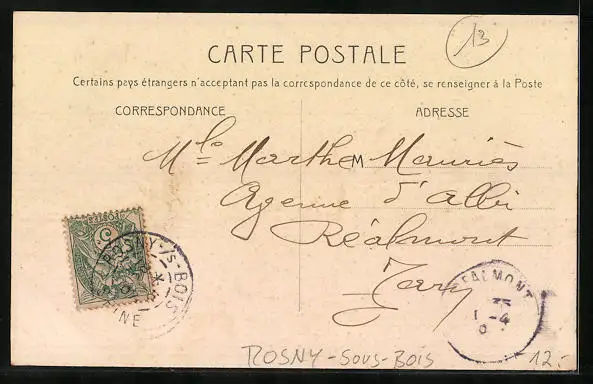 13
CARTE POSTALE
Certains pays étrangers n'acceptant pas la correspondance de ce côté, se renseigner à la Poste
CORRESPONDANCE
ADRESSE
M
Mlle Marthe Mauriès
Avenue d'Albi
Réalmont
Tarn
POSTES
5
ROSNY-S-BOIS
SEINE
REALMONT
1-4
ROSNY-SOUS-BOIS
12.-